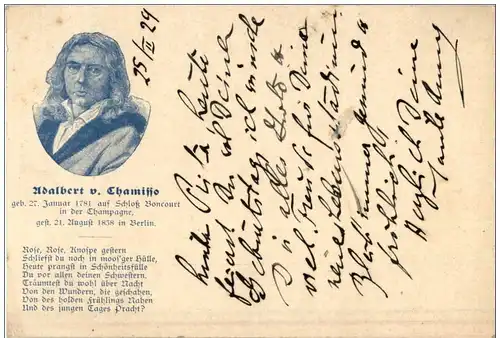 Adalbert v. Chamisso
geb. 27. Januar 1781 auf Schloß Boncourt
in der Champagne,
gest. 21. August 1838 in Berlin.
Rose, Rose, Knospe gestern
Schliefst du noch in moos'ger Hülle,
Heute prangst in Schönheitsfülle
Du vor allen deinen Schwestern.
Träumtest du wohl über Nacht
Von den Wundern, die geschahen,
Von des holden Frühlings Nahen
Und des jungen Tages Pracht?
25/II 29
heute
feierst Du Deinen
Geburtstag ich wünsche
Dir alles Gute &
viel Freude für Deine
Bleib' immer gesund &
fröhlich.
Herzlich Deine
Tante